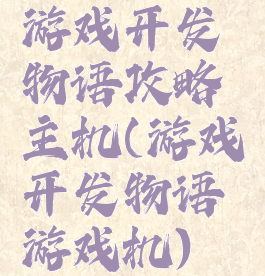 游戏开发
物语攻略
主机(游戏
开发物语
游戏机)